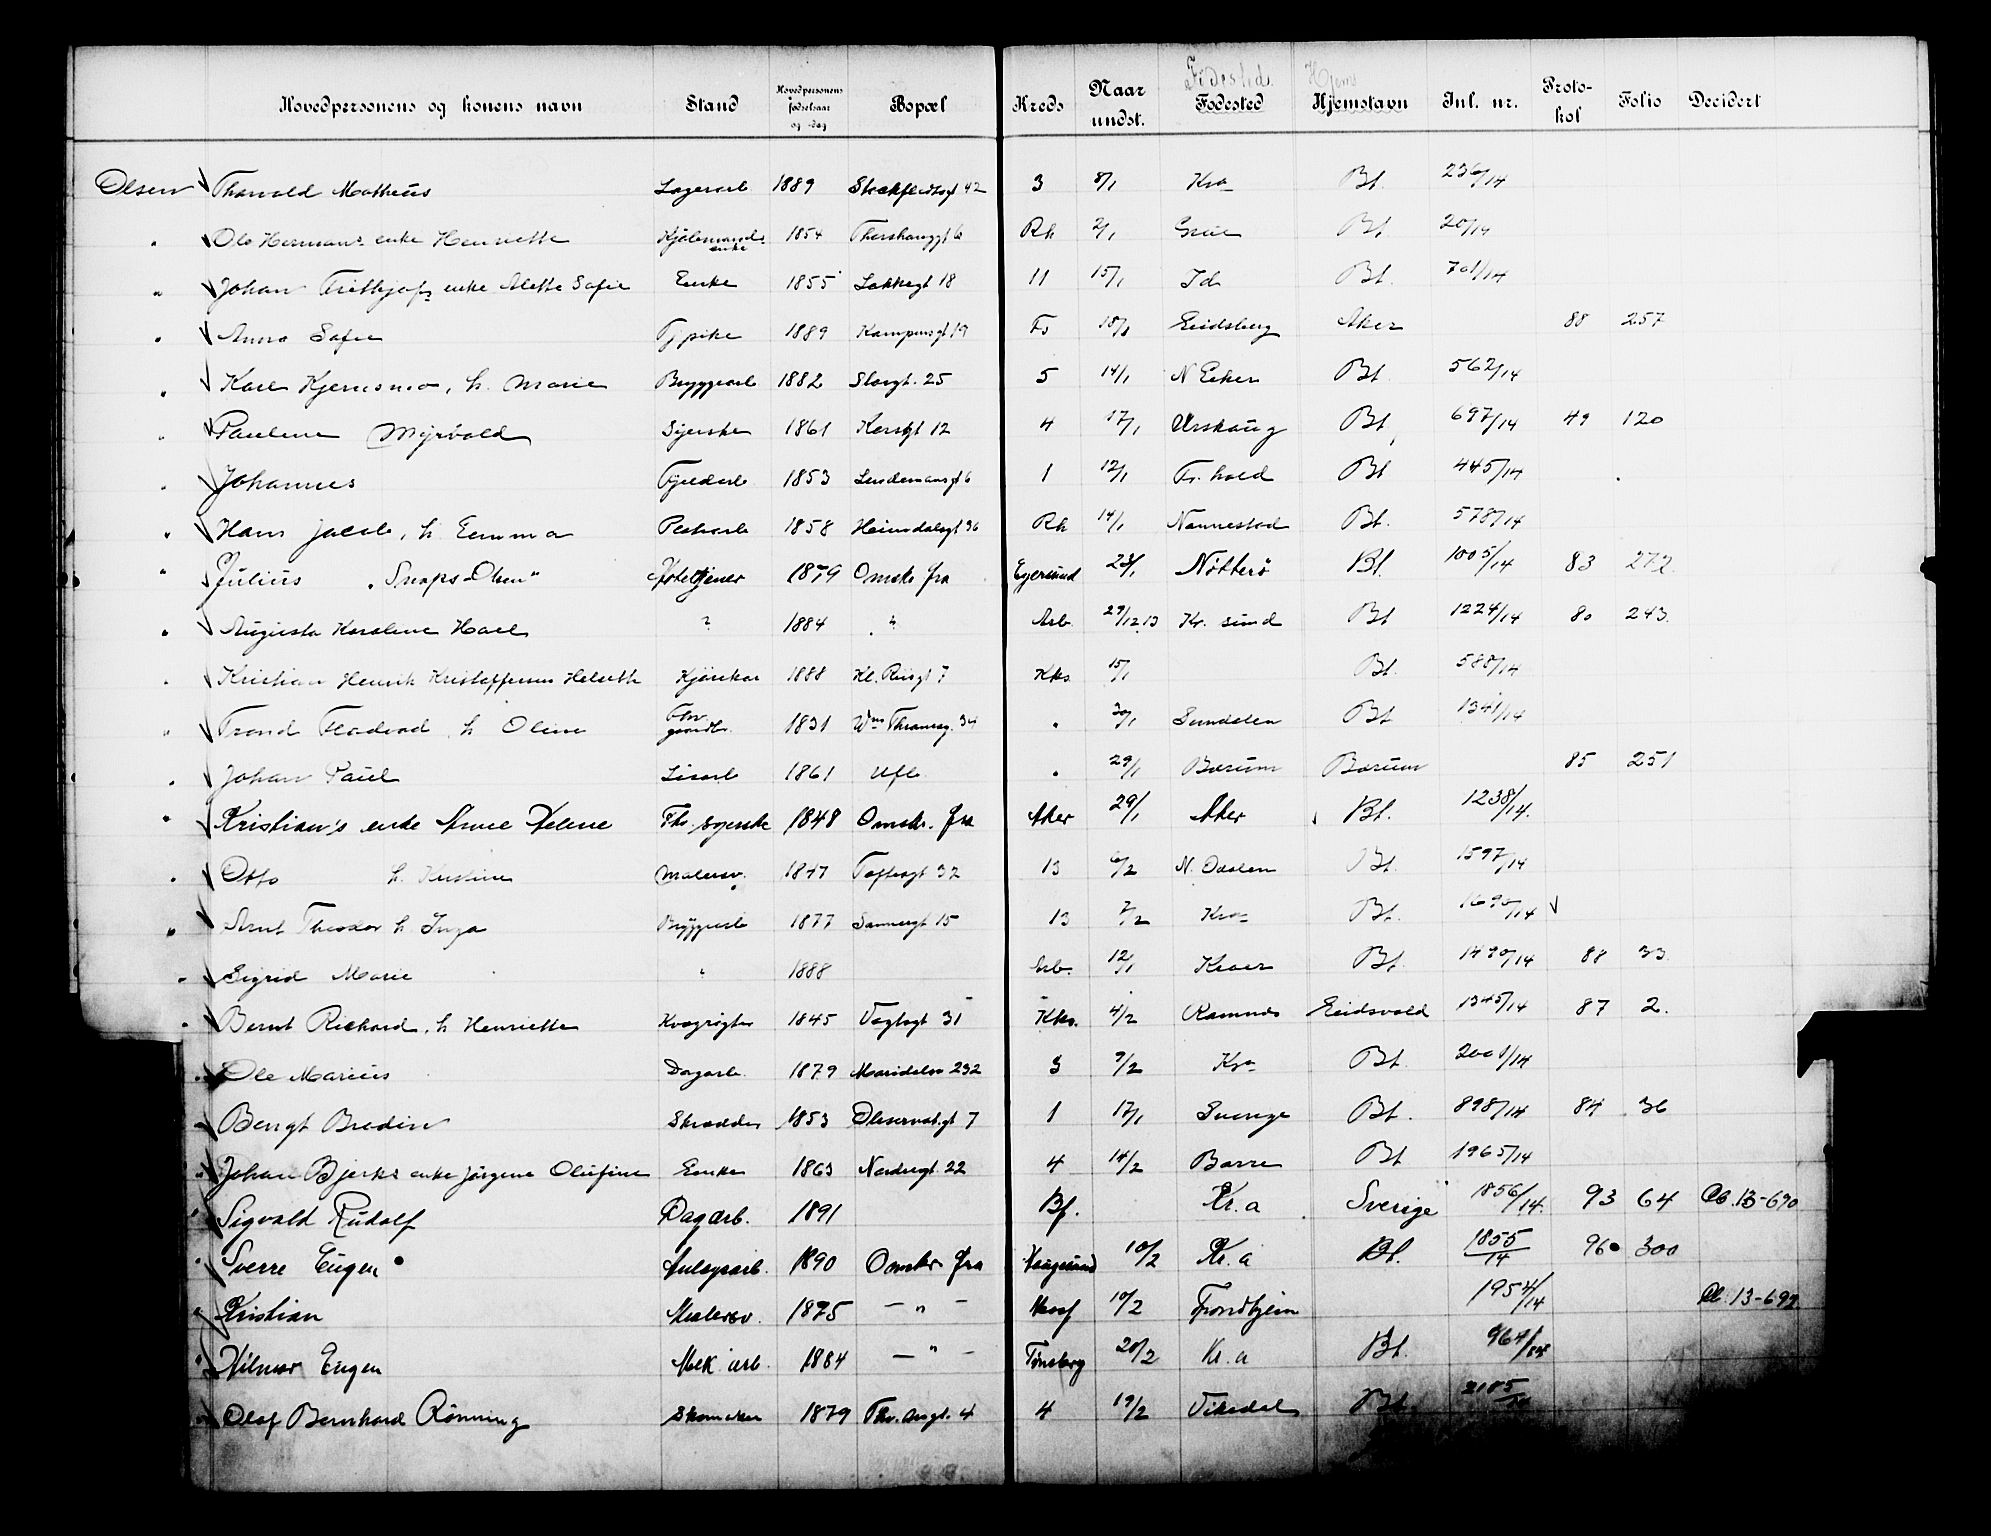 Hovedpersonens og konens navn Stand Hovedpersonens fødselsaar og -dag Bopæl Kreds Naar undst. Fødested Hjemstavn Inl. nr. Proto-kol Folio Decidert
Olsen Thorvald Matheus Lagerarb 1889 42 3 8/1 Kra Bt. 236/14
" Ole Hermans enke Henriette Kjølemands enke 1854 Thorshauggt 6 Rh 2/1 Grue Bt 20/14
" Johan Frithjofs enke Alette Sofie Enke 1855 Lakkegt 18 11 15/1 Id Bt. 701/14
" Anna Sofie Tjpike 1889 Kampensgt 19 Fs 18/1 Eidsberg Aker 88 257
" Karl Kjernsmo, h. Marie Bryggearb 1882 Storgt. 25 5 14/1 N Eker Bt. 562/14
" Pauline Myrvold Syerske 1861 Korsgt 12 4 17/1 Urskaug Bt. 697/14 49 120
" Johannes 1853 Lindemansgt 6 1 12/1 Fr. hald Bt 445/14
" Hans Jacob, h. Emma 1858 Heimdalsgt 36 Rh 14/1 Nannestad Bt. 578/14
" Julius "Snaps-Olsen" Hoteltjener 1879 Omstr. fra Egersund 23/1 Nötterö Bt. 1005/14 83 272.
" Augusta Karoline Hael ? 1884 " Arb. 29/12.13 Kr. sund Bt 1224/14 80 243.
" Kristian Henrik Kristoffersen Helseth Kjørekar 1888 Kl. Riisgt 7 Kks 15/1 Bt. 588/14
" Trond Fladvad h Oline Fhv gaardbr. 1831 Wm Thranesg. 34 " 30/1 Sundalen Bt 1341/14
" Johan Paul Lösarb 1861 Ufb. " 29/1 Bærum Bærum 85 251
" Kristian's enke Anne Helene Fh. syerske 1848 Omstr. fra Aker 29/1 Aker Bt. 1238/14.
" Otto h. Kristine Malersv. 1847 Toftesgt 32 13 6/2 N. Odalen Bt. 1597/14
" Arnt Theodor h Inga Bryggearb 1877 Sannergt 15 13 7/2 Kra Bt. 1690/14
" Sigrid Marie " 1888 Arb. 12/1 Kraer Bt. 1490/14 88 33.
" Bernt Richard, h Henriette Kvægrøgter 1845 Vogtsgt 31 Kks. 4/2 Ramnes Eidsvold 1345/14 87 2.
" Ole Marius Dagarb. 1879 Maridalsv 232 3 9/2 Kra Bt. 2001/14
" Bengt Bredin Skrædder 1853 Observat.gt 7 1 17/1 Sverige Bt. 898/14 84 36
" Johan Bjerkes enke Jørgine Olufine Enke 1863 Nordregt 22 4 14/2 Borre Bt 1965/14
" Sigvald Rudolf Dagarb. 1891 Bf. Kr.a Sverige 1856/14. 93 64 Cb. 13-690
" Sverre Eugen 1890 Omstr fra Haugesund 10/2 Kr.a Bt. 1855/14 96 300
" Kristian Malersv. 1875 — " — 10/2 Trondhjem 1954/14 Cb. 13-692
" Hilmar Eugen Mek. arb. 1884 — " — Tønsberg 20/2 Kr.a Bt. 964/14
" Olaf Bernhard Rönning Skomaker 1879 Thv. Mgt. 4 4 19/2 Vikedal Bt. 2185/14